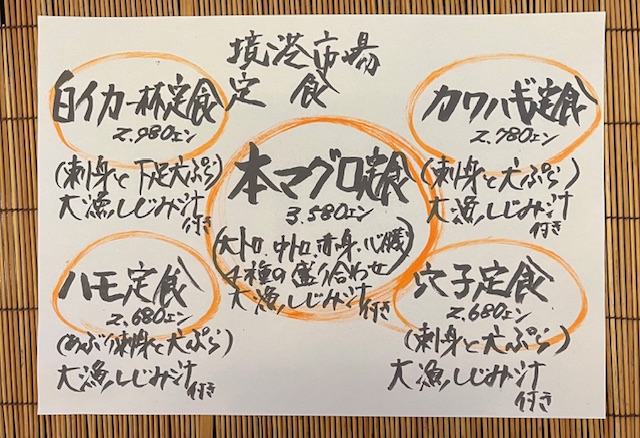 境港市場
定食
白イカ一杯定食
2,980エン
(刺身と下足天ぷら)
大漁しじみ汁
付き
カワハギ定食
2,780エン
(刺身と天ぷら)
大漁しじみ汁
付き
本マグロ定食
3,580エン
(大トロ、中トロ、赤身、心臓)
4種の盛り合わせ
大漁しじみ汁
付き
ハモ定食
2,680エン
(あぶり刺身と天ぷら)
大漁しじみ汁
付き
穴子定食
2,680エン
(刺身と天ぷら)
大漁しじみ汁
付き